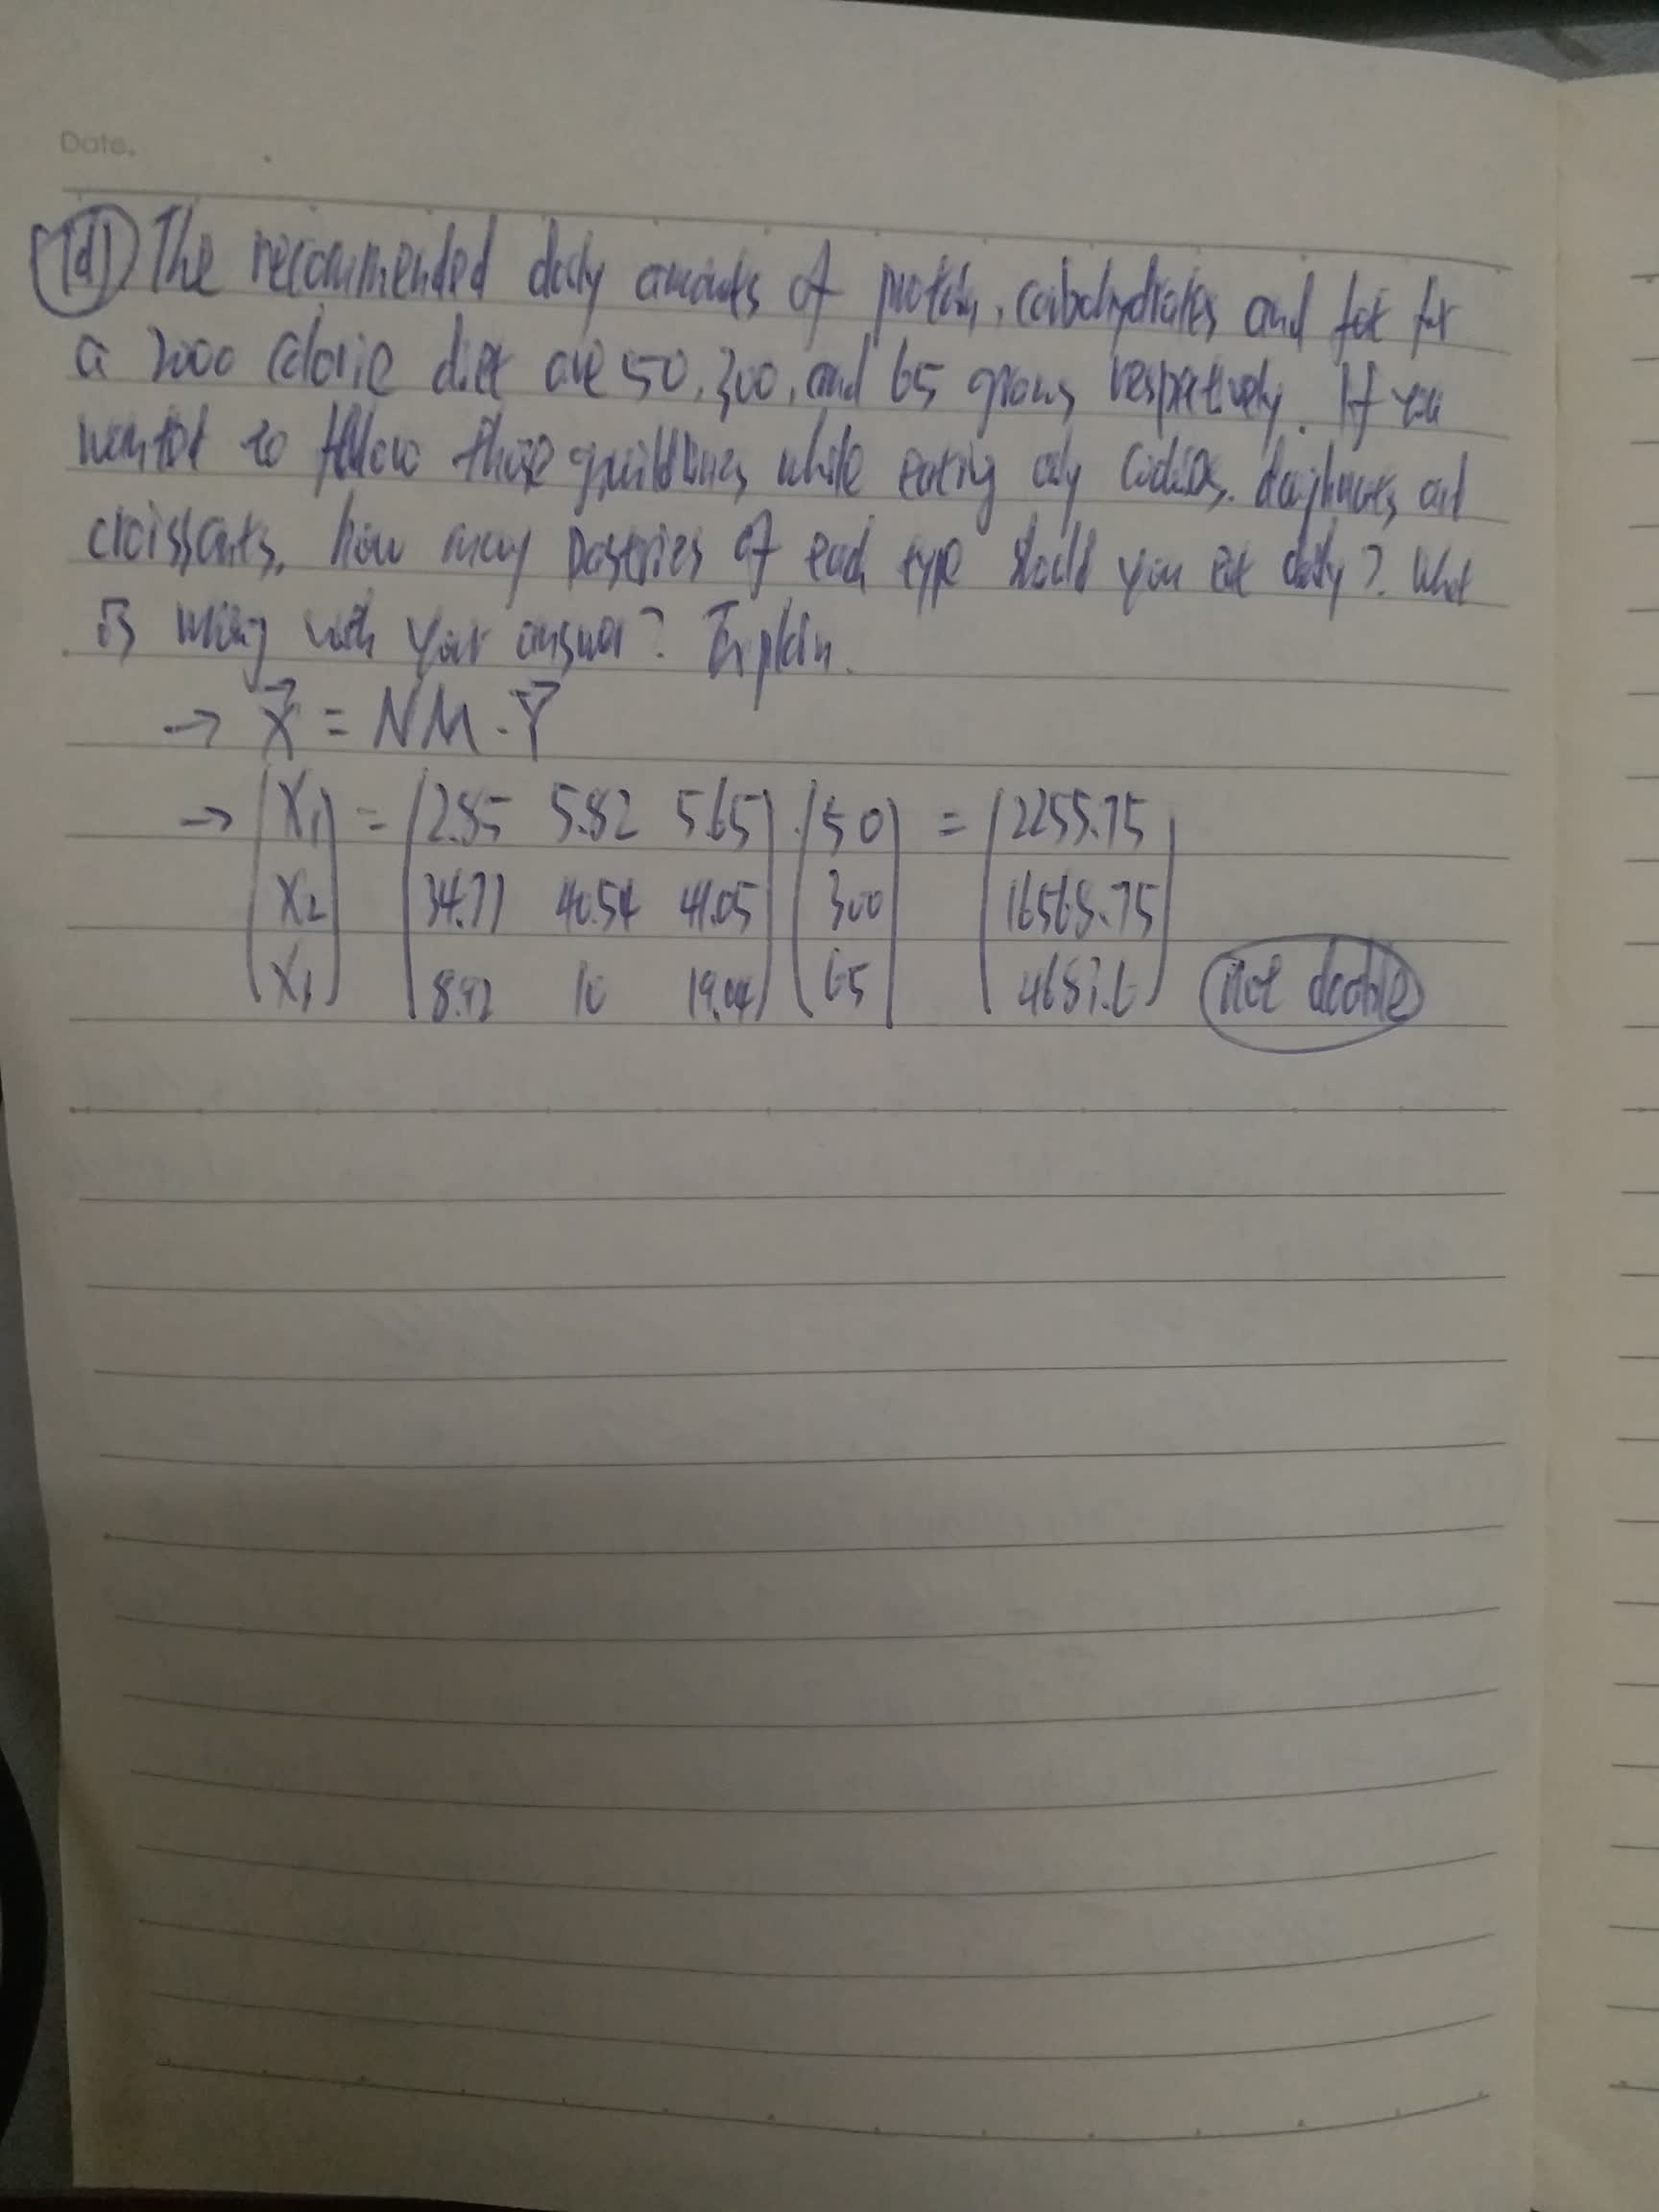 Date.
(d) The recommended daily amounts of protein, carbohydrates and fat for
a 2000 calorie diet are 50, 300, and 65 grams respectively. If you
wanted to follow those guildlines while eating only cookies, doughnuts and
croissants, how many pastries of each type should you eat daily? What
is wrong with your answer? Explain.
→ X = NM · Y
→ (X1 X2 X3) = (2.85 5.82 5.65) (50) = (2255.75)
34.77 40.54 41.05 300 16568.75
8.92 10 19.04 65 4683.6 not doable